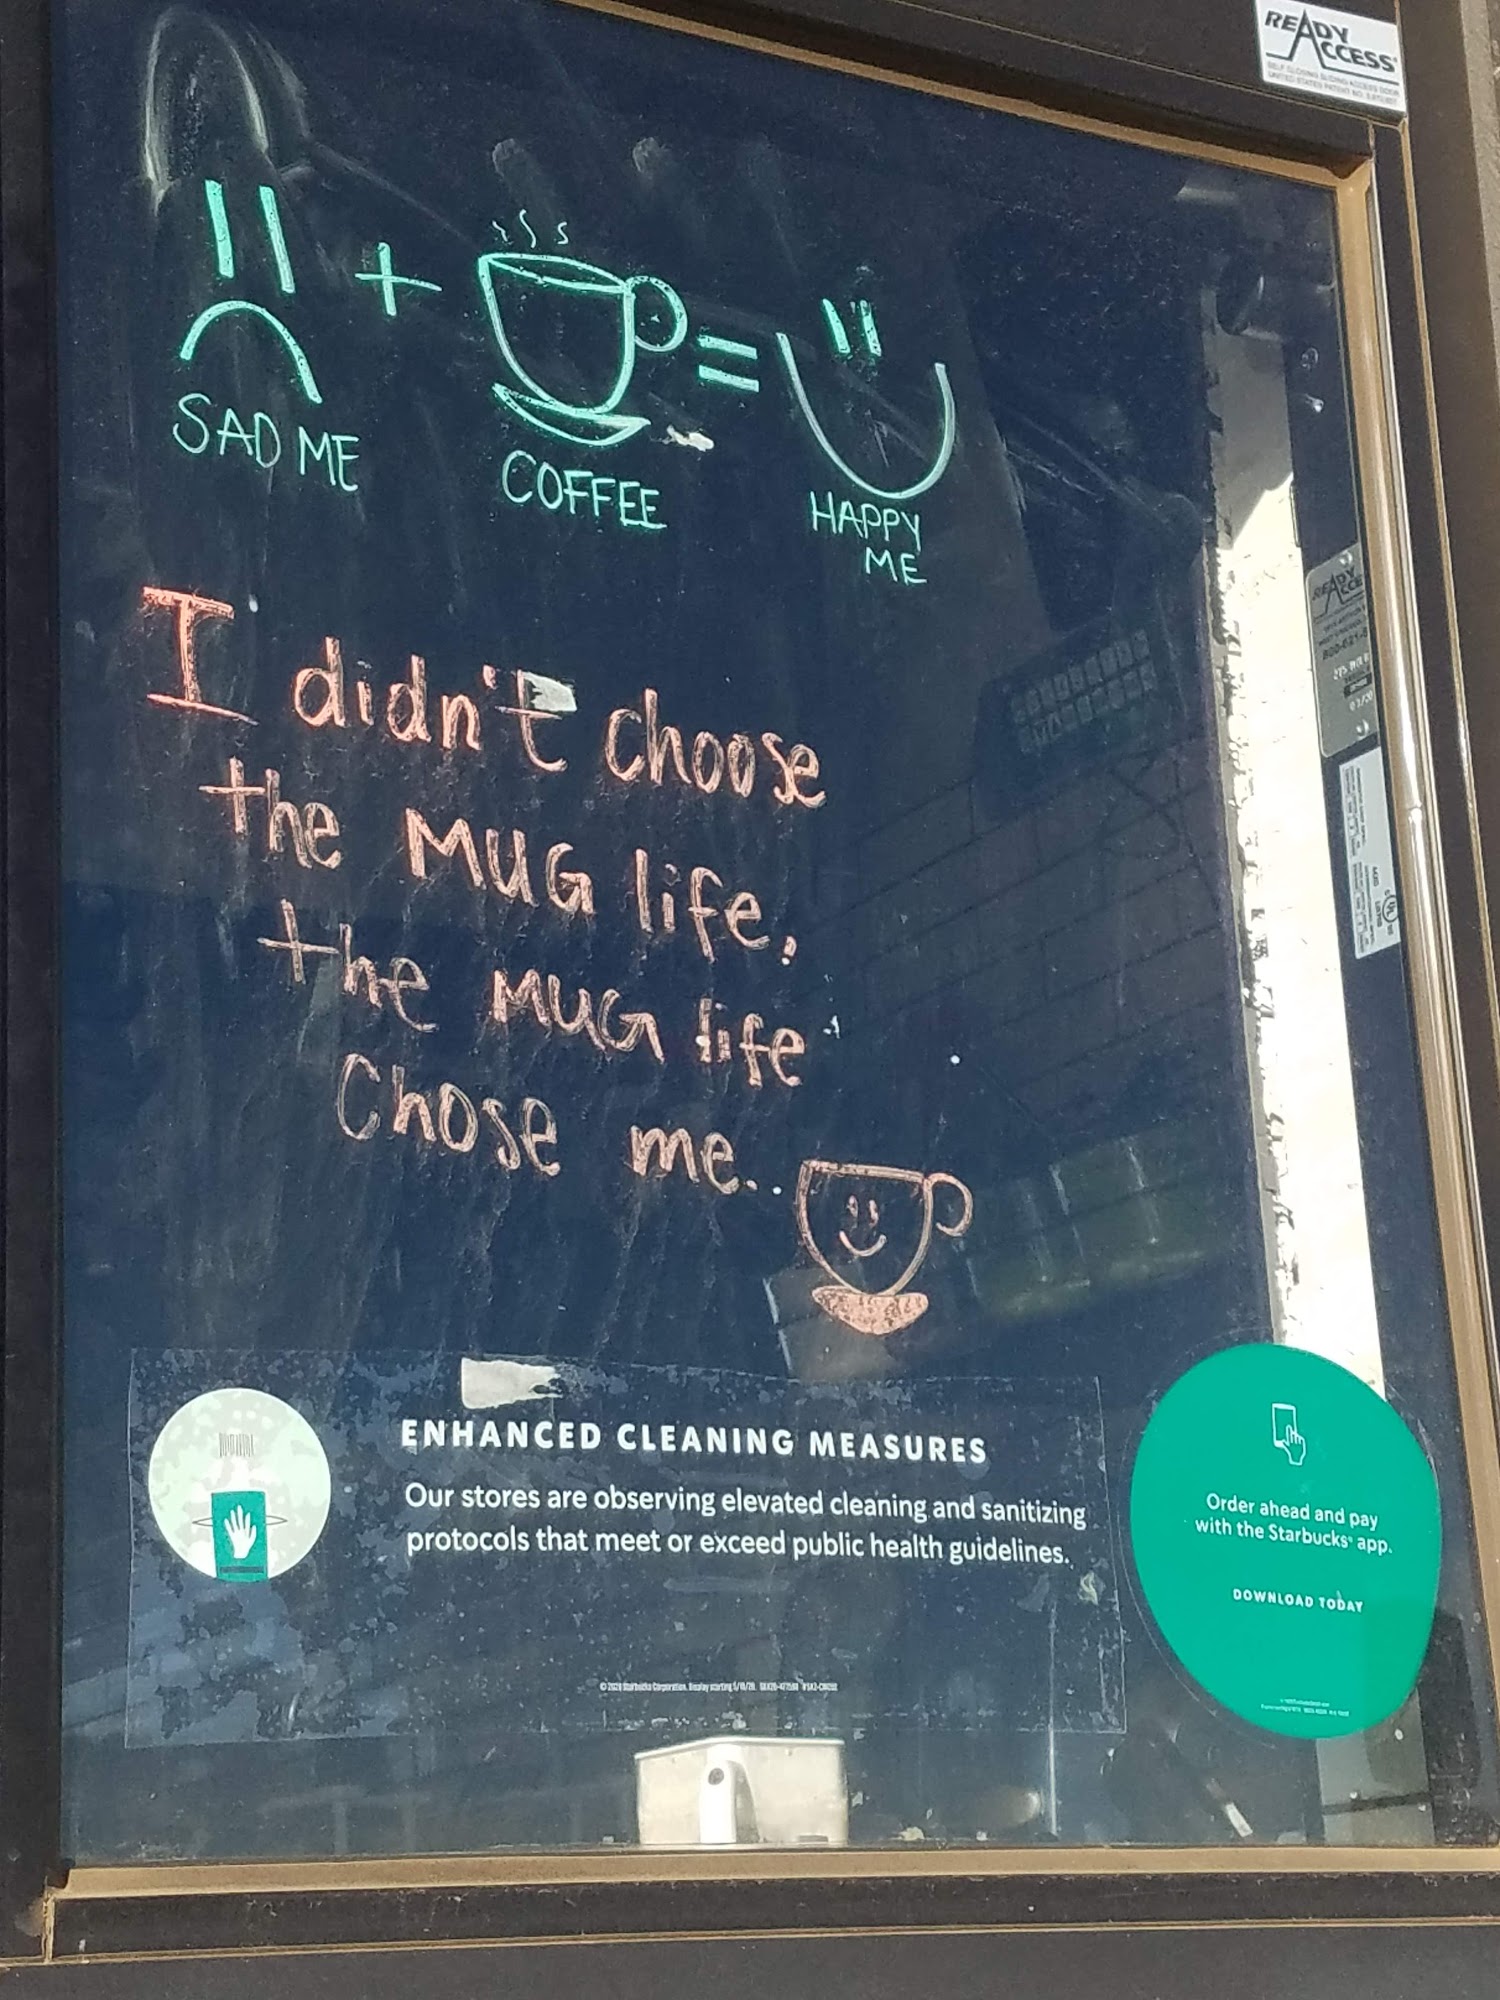 READY
ACCESS
SELF CLOSING SLIDING ACCESS DOOR
SAD ME
+
COFFEE
=
HAPPY
ME
I didn't choose
the MUG life.
the MUG life
Chose me..
ENHANCED CLEANING MEASURES
Our stores are observing elevated cleaning and sanitizing
protocols that meet or exceed public health guidelines.
© 2020 Starbucks Corporation.
Order ahead and pay
with the Starbucks® app.
DOWNLOAD TODAY